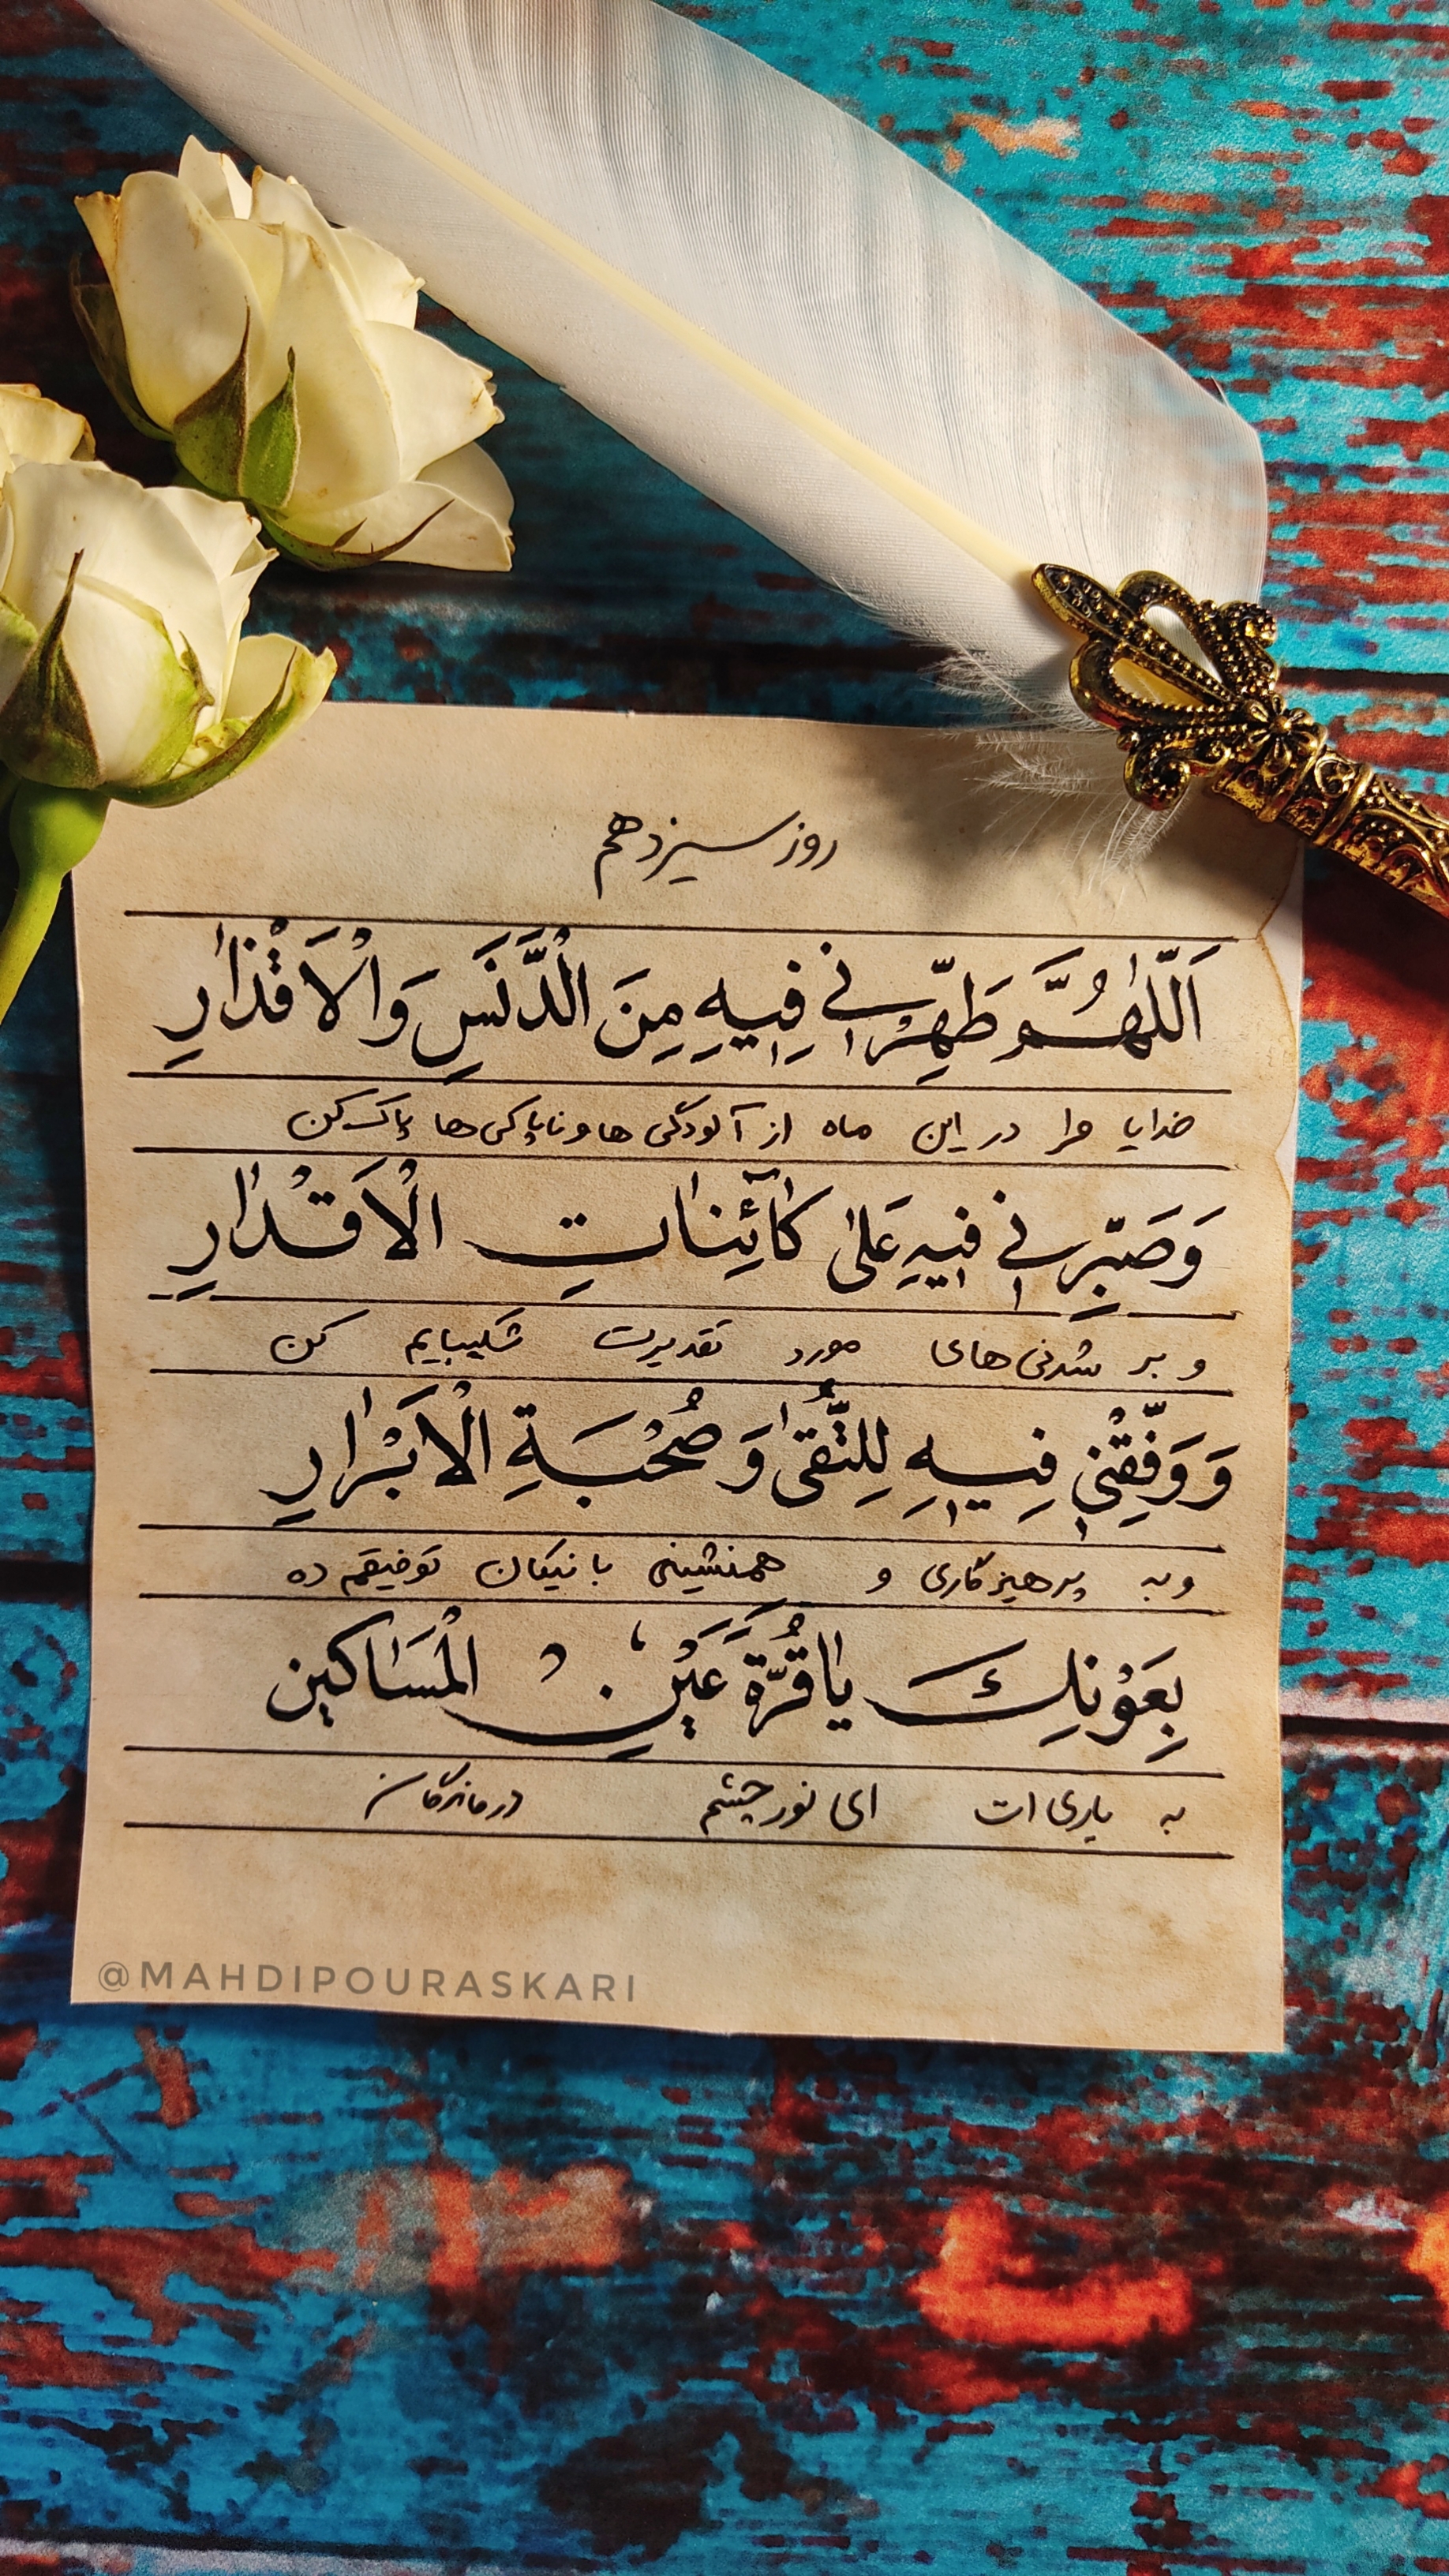 روز سیزدهم
اَللّٰهُمَّ طَهِّرْنٖی فِیهِ مِنَ الْدَّنَسِ وَالْاَقْذٰارِ
خدایا مرا در این ماه از آلودگی ها و ناپاکی ها پاک کن
وَصَبِّرنٖی فٖیهِ عَلیٰ کٰآئِنٰاتِ الْاَقْدٰارِ
و بر شدنی های مورد تقدیرت شکیبایم کن
وَوَفِّقْنٖی فِیهِ لِلتُّقیٰ وَصُحْبَةِ الْاَبْرٰارِ
و به پرهیزگاری و همنشینی با نیکان توفیقم ده
بِعَوْنِكَ یٰا قُرَّةَ عَیْنِ الْمَسٰاکین
به یاری ات ای نور چشم درماندگان
@MAHDIPOURASKARI